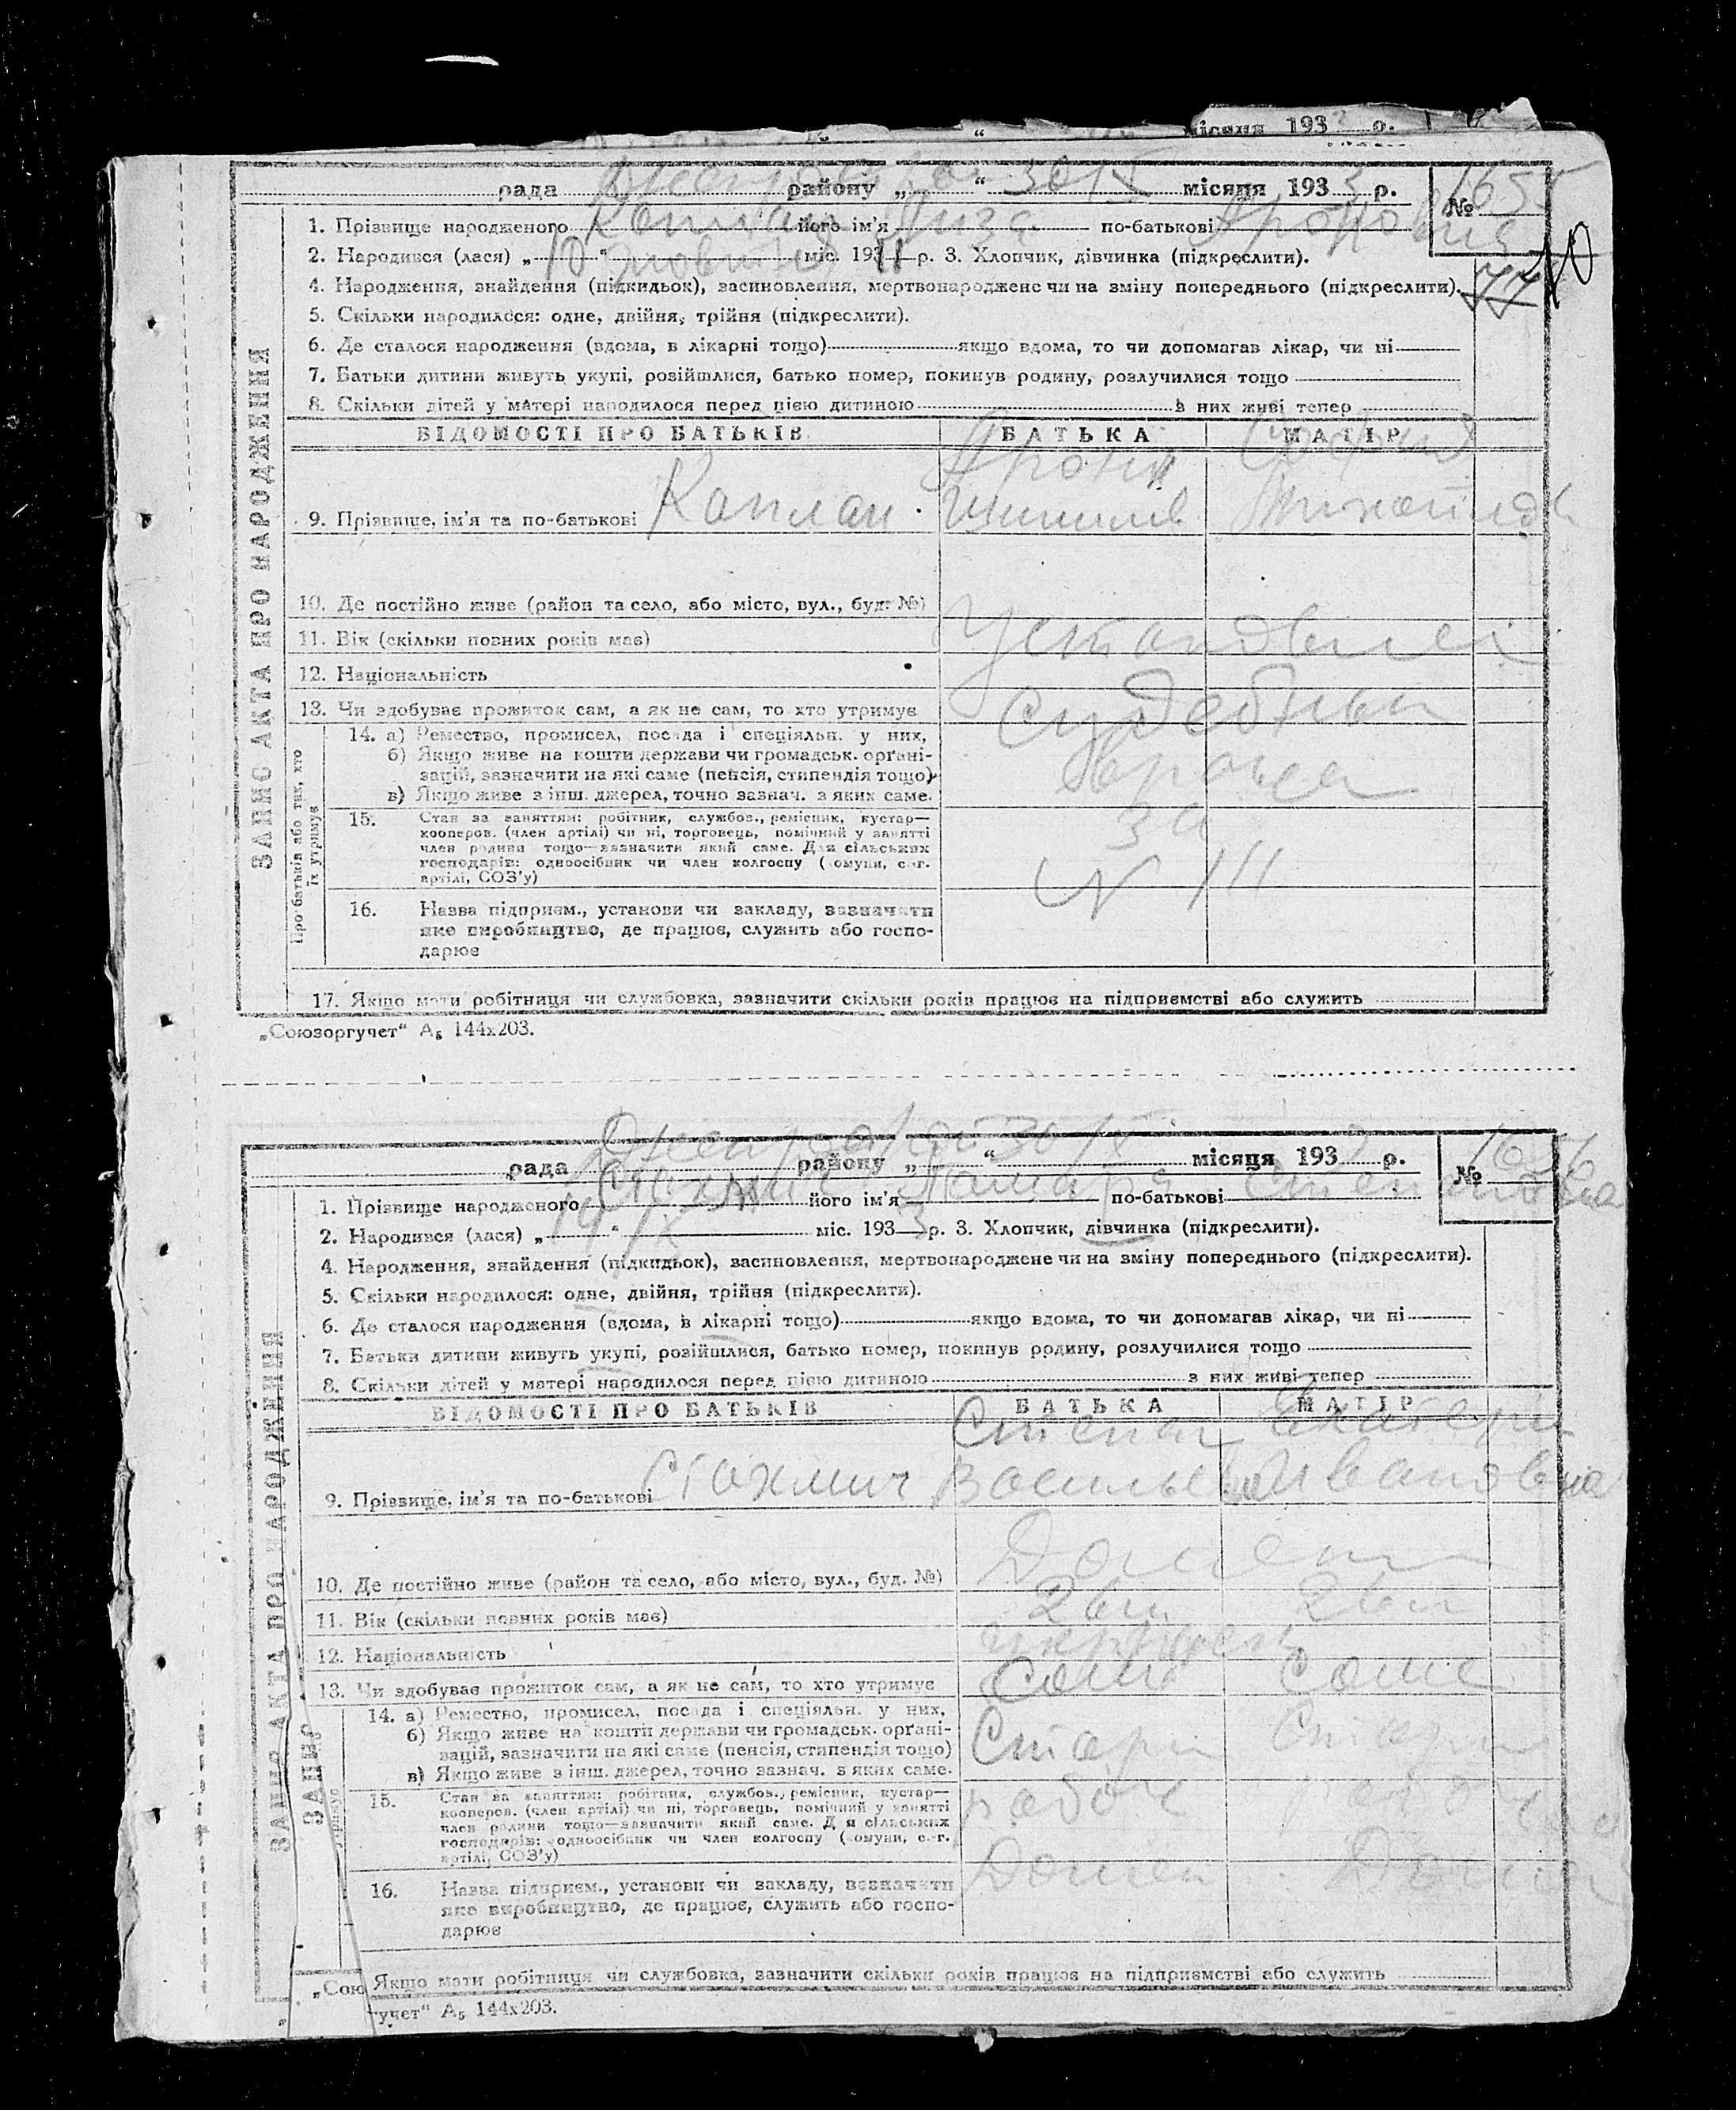 місяця 193 р.
рада району „ “ 30 IX місяця 1933 р. № 1655
1. Прізвище народженого Каплан його ім'я Лиза по-батькові Ароновна
2. Народився (лася) „10“ міс. 1931 р. 3. Хлопчик, дівчинка (підкреслити).
4. Народження, знайдення (підкидьок), засиновлення, мертвонароджене чи на зміну попереднього (підкреслити).
5. Скільки народилося: одне, двійня, трійня (підкреслити).
6. Де сталося народження (вдома, в лікарні тощо) якщо вдома, то чи допомагав лікар, чи ні
7. Батьки дитини живуть укупі, розійшлися, батько помер, покинув родину, розлучилися тощо
8. Скільки дітей у матері народилося перед цією дитиною з них живі тепер
ЗАПИС АКТА ПРО НАРОДЖЕННЯ
ВІДОМОСТІ ПРО БАТЬКІВ БАТЬКА МАТІР
Арон
9. Прізвище, ім'я та по-батькові Каплан
10. Де постійно живе (район та село, або місто, вул., буд. №)
11. Вік (скільки повних років має) Установлен
12. Національність
13. Чи здобуває прожиток сам, а як не сам, то хто утримує Судебным
Про батьків або тих, хто їх утримує
14. а) Ремество, промисел, посада і спеціяльн. у них,
б) Якщо живе на кошти держави чи громадськ. орґані-
зацій, зазначити на які саме (пенсія, стипендія тощо)
в) Якщо живе з інш. джерел, точно зазнач. з яких саме.
15. Стан за заняттям: робітник, службов., ремісник, кустар—
кооперов. (член артілі) чи ні, торговець, помічний у занятті
член родини тощо—зазначити який саме. Для сільських
господарів: одноосібник чи член колгоспу (комуни, с.-г.
артілі, СОЗ'у)
за
№ 111
16. Назва підприєм., установи чи закладу, зазначити
яке виробництво, де працює, служить або госпо-
дарює
17. Якщо мати робітниця чи службовка, зазначити скільки років працює на підприємстві або служить
„Союзоргучет“ А₅ 144х203.
рада району „ “ 30 IX місяця 1933 р. № 1656
1. Прізвище народженого його ім'я Тамара по-батькові Степановна
2. Народився (лася) „19“ IX міс. 1933 р. 3. Хлопчик, дівчинка (підкреслити).
4. Народження, знайдення (підкидьок), засиновлення, мертвонароджене чи на зміну попереднього (підкреслити).
5. Скільки народилося: одне, двійня, трійня (підкреслити).
6. Де сталося народження (вдома, в лікарні тощо) якщо вдома, то чи допомагав лікар, чи ні
7. Батьки дитини живуть укупі, розійшлися, батько помер, покинув родину, розлучилися тощо
8. Скільки дітей у матері народилося перед цією дитиною з них живі тепер
ЗАПИС АКТА ПРО НАРОДЖЕННЯ
ВІДОМОСТІ ПРО БАТЬКІВ БАТЬКА МАТІР
Степан Екатери
9. Прізвище, ім'я та по-батькові Стахмич Василье Ивановна
10. Де постійно живе (район та село, або місто, вул., буд. №)
11. Вік (скільки повних років має)
12. Національність
13. Чи здобуває прожиток сам, а як не сам, то хто утримує Сам Саме
14. а) Ремество, промисел, посада і спеціяльн. у них,
б) Якщо живе на кошти держави чи громадськ. орґані-
зацій, зазначити на які саме (пенсія, стипендія тощо)
в) Якщо живе з інш. джерел, точно зазнач. з яких саме.
15. Стан за заняттям: робітник, службов., ремісник, кустар—
кооперов. (член артілі) чи ні, торговець, помічний у занятті
член родини тощо—зазначити який саме. Для сільських
господарів: одноосібник чи член колгоспу (комуни, с.-г.
артілі, СОЗ'у)
рабоч
16. Назва підприєм., установи чи закладу, зазначити
яке виробництво, де працює, служить або госпо-
дарює
Якщо мати робітниця чи службовка, зазначити скільки років працює на підприємстві або служить
„Сою
учет“ А₅ 144х203.